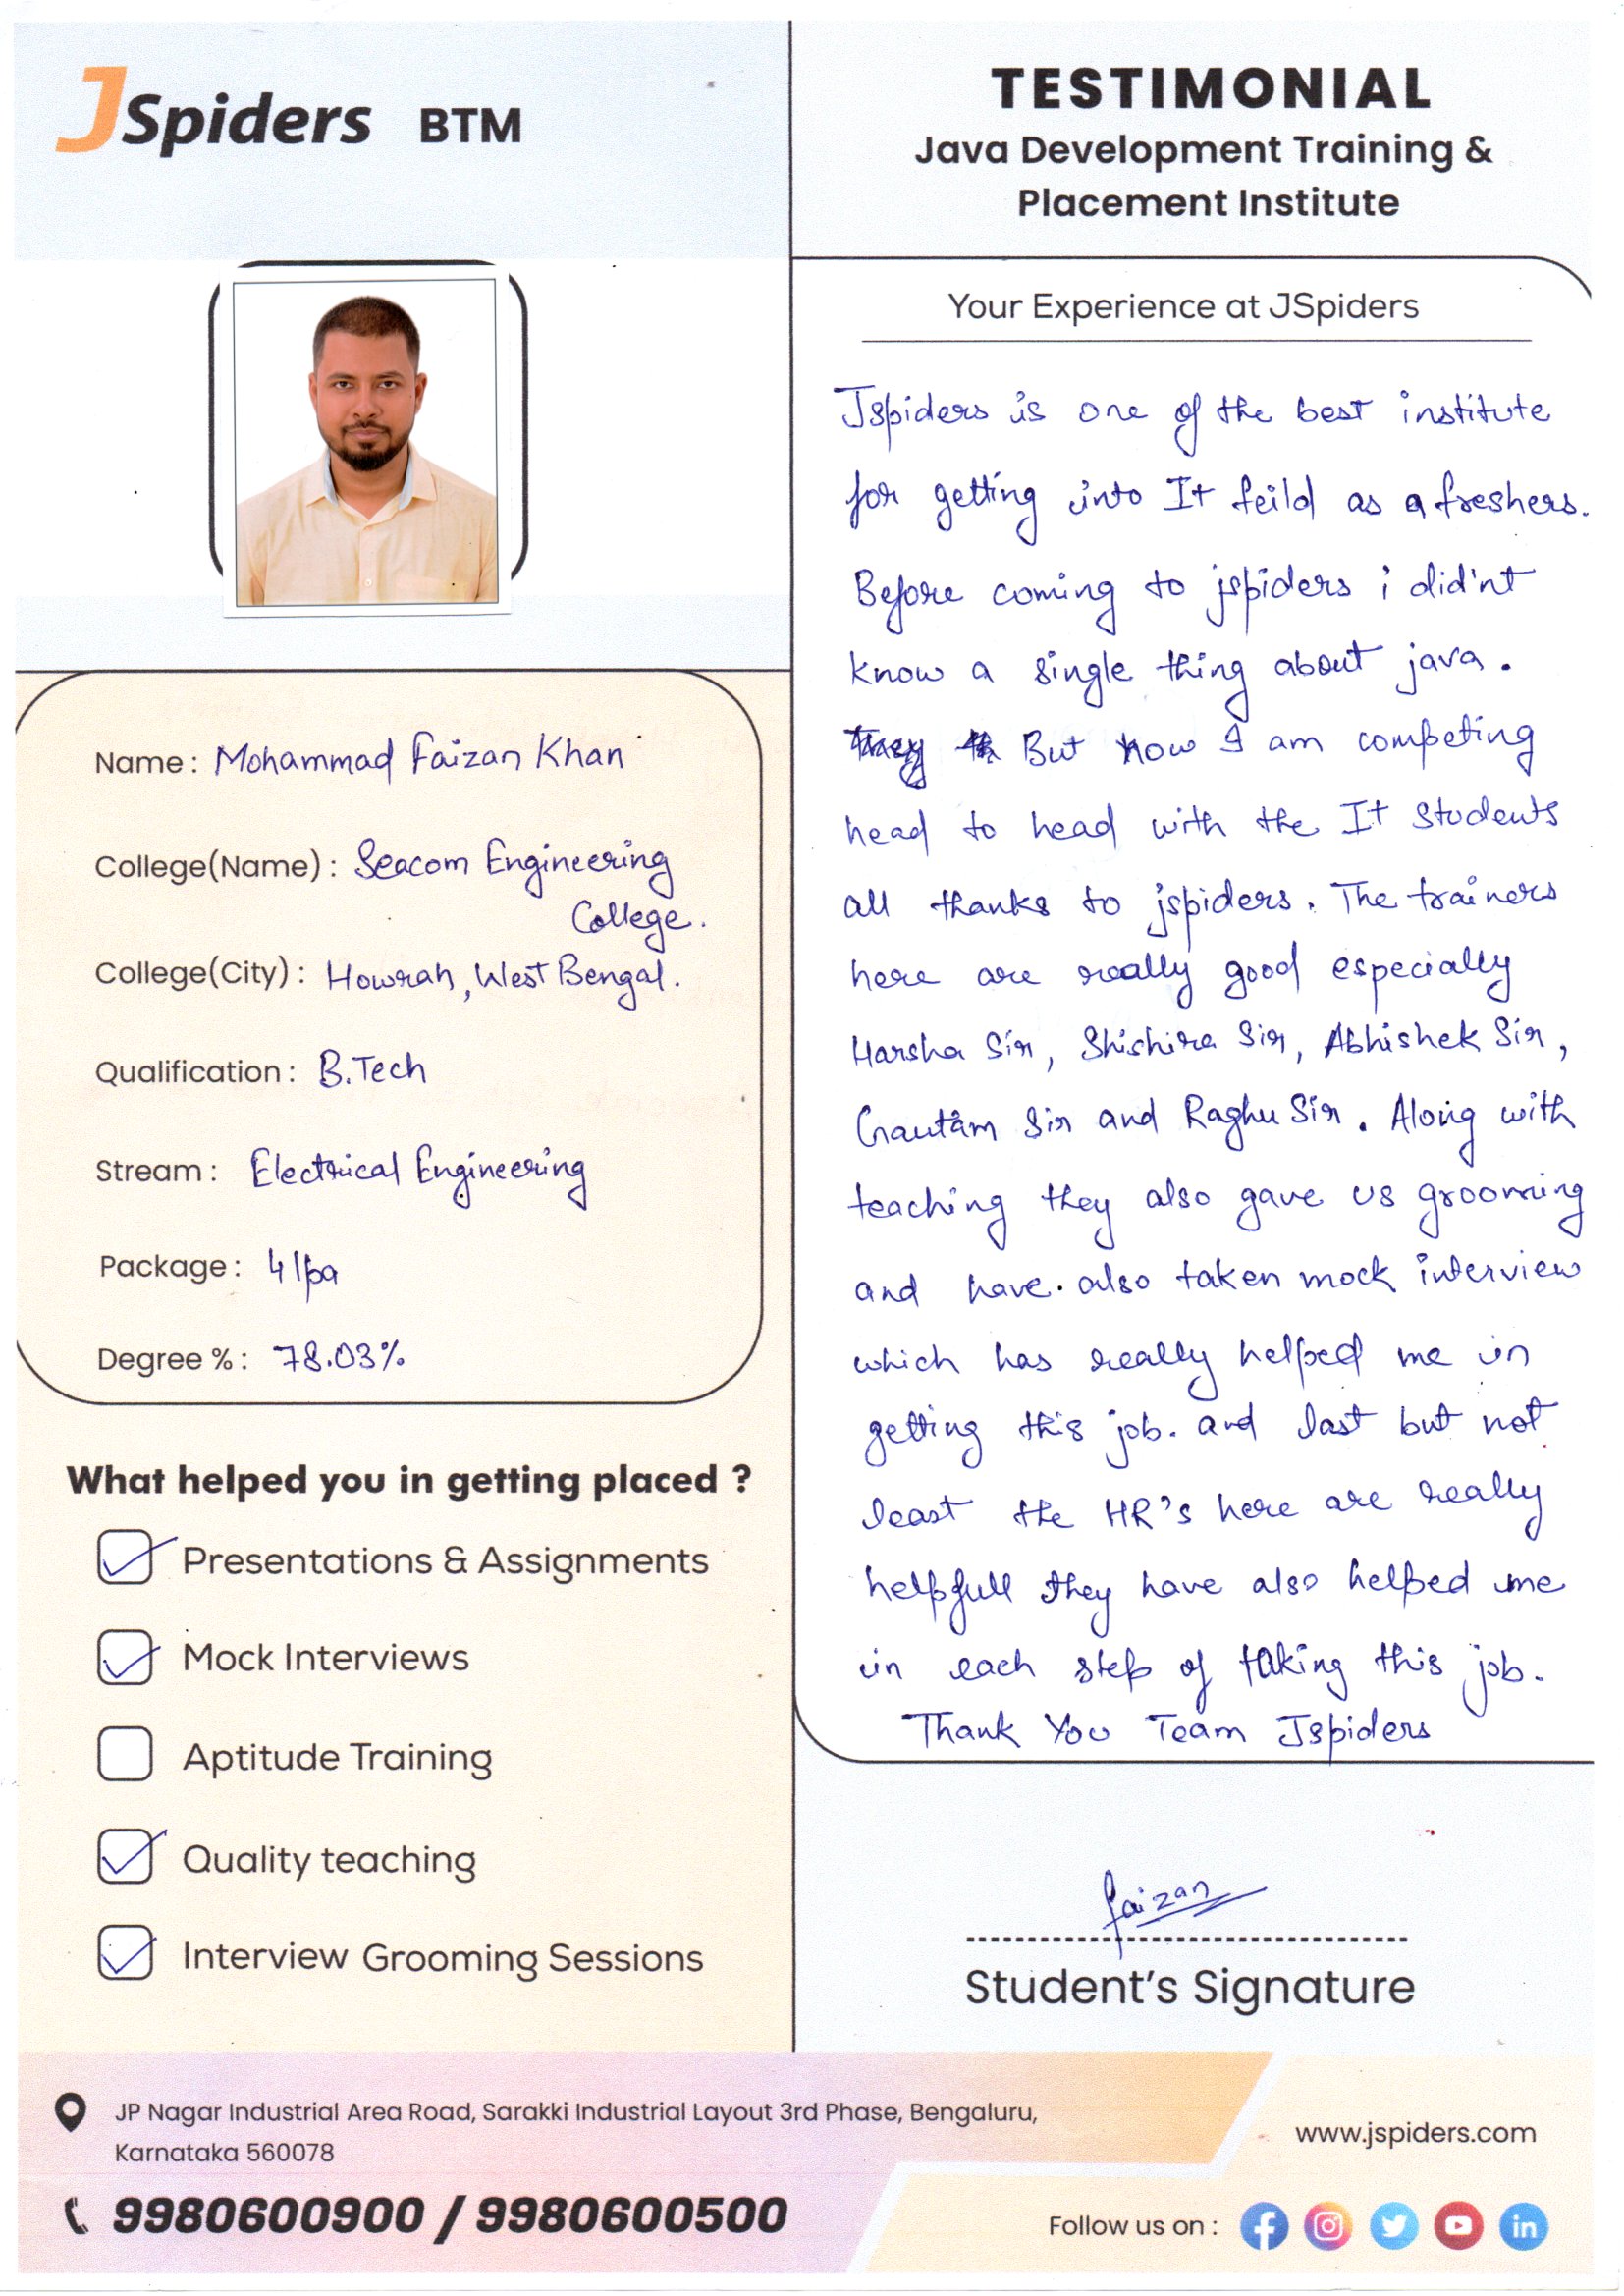 JSpiders BTM
TESTIMONIAL
Java Development Training &
Placement Institute
Name : Mohammad Faizan Khan
College(Name) : Seacom Engineering
College.
College(City) : Howrah, West Bengal.
Qualification : B.Tech
Stream : Electrical Engineering
Package : 4 lpa
Degree % : 78.03%
What helped you in getting placed ?
Presentations & Assignments
Mock Interviews
Aptitude Training
Quality teaching
Interview Grooming Sessions
Your Experience at JSpiders
Jspiders is one of the best institute
for getting into It feild as a freshers.
Before coming to jspiders i did'nt
know a single thing about java.
But now I am competing
head to head with the It students
all thanks to jspiders. The trainers
here are really good especially
Harsha Sir, Shishira Sir, Abhishek Sir,
Gautam Sir and Raghu Sir. Along with
teaching they also gave us grooming
and have also taken mock interview
which has really helped me in
getting this job. and last but not
least the HR's here are really
helpfull they have also helped me
in each step of taking this job.
Thank You Team Jspiders
faizan
Student's Signature
JP Nagar Industrial Area Road, Sarakki Industrial Layout 3rd Phase, Bengaluru,
Karnataka 560078
9980600900 / 9980600500
www.jspiders.com
Follow us on :